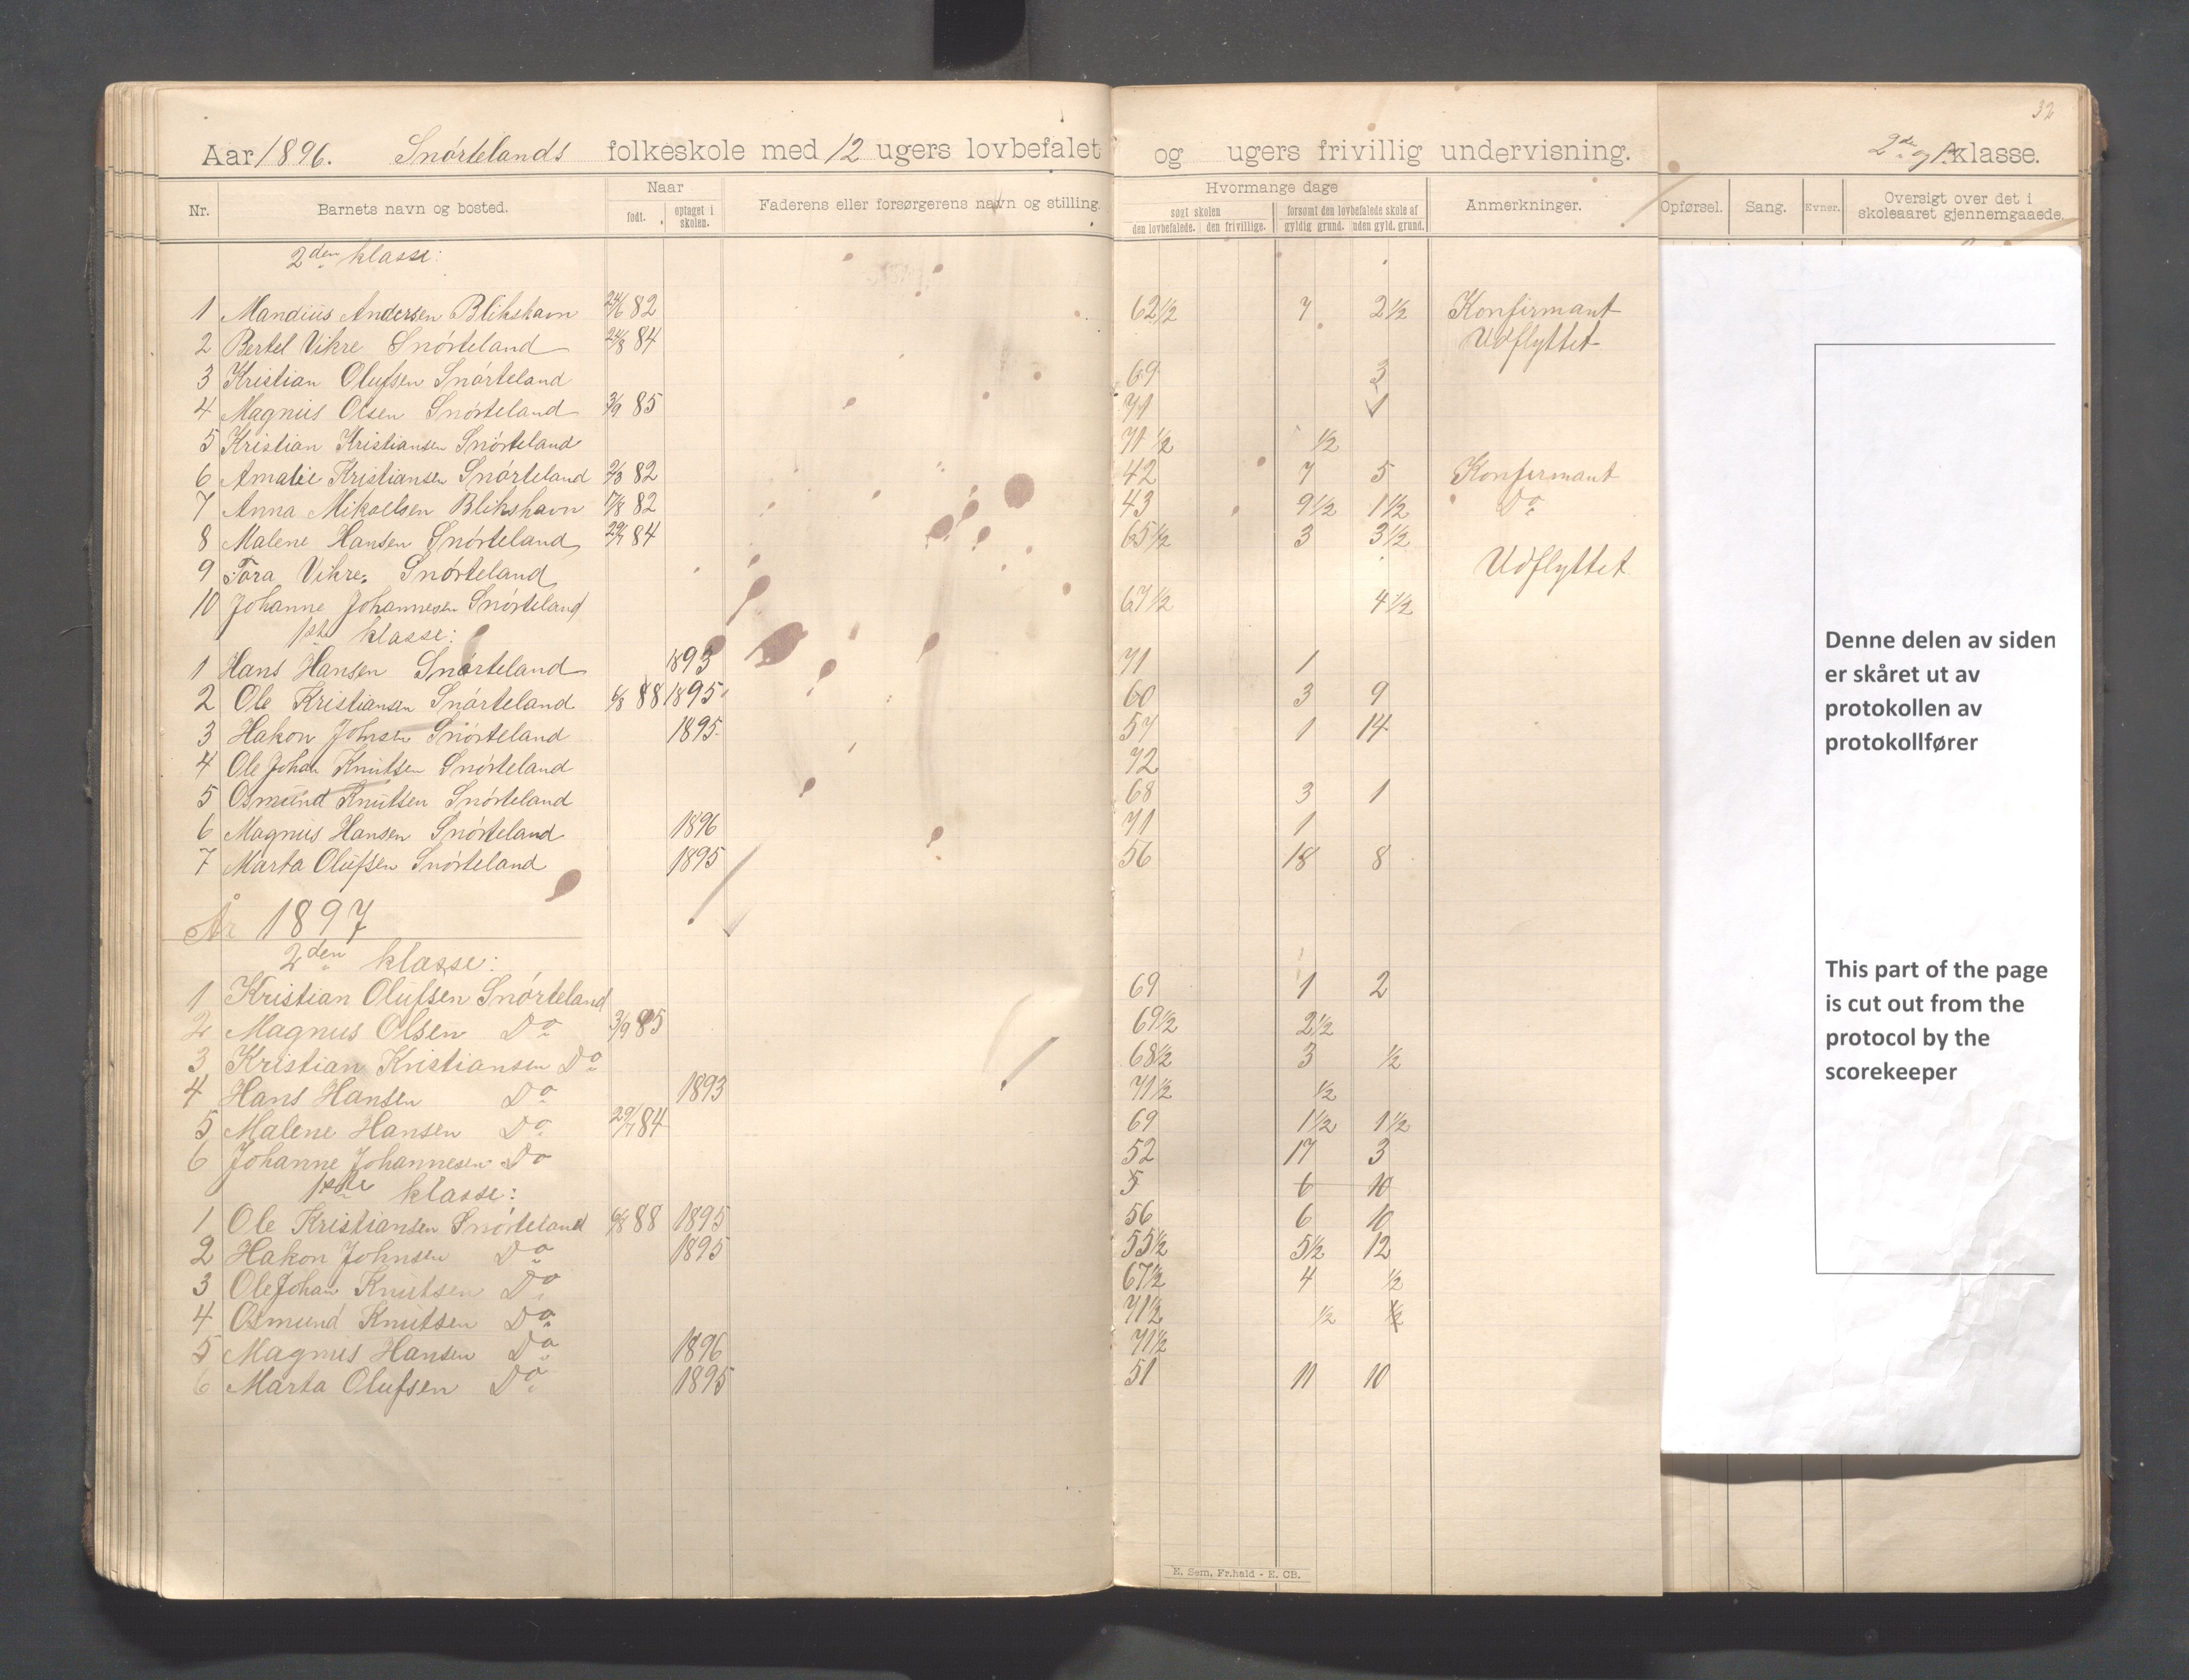 32
Aar 1896. Snörtelands folkeskole med 12 ugers lovbefalet og ugers frivillig undervisning. 2den og 1ste klasse.
Nr. Barnets navn og bosted. Naar født. optaget i skolen. Faderens eller forsørgerens navn og stilling. Hvormange dage søgt skolen den lovbefalede. den frivillige. forsømt den lovbefalede skole af gyldig grund. uden gyld. grund. Anmerkninger. Opførsel. Sang. Evner. Oversigt over det i skoleaaret gjennemgaaede.
2den klasse:
1 Mandius Andersen Blikshavn 24/6 82 62 1/2 7 2 1/2 Konfirmant
2 Bertel Vikre Snörteland 24/8 84 Udflyttet
3 Kristian Olufsen Snörteland 69 3
4 Magnus Olsen Snörteland 3/9 85 71 1
5 Kristian Kristiansen Snörteland 71 1/2 1/2
6 Amalie Kristiansen Snörteland 2/3 82 42 7 5 Konfirmant
7 Anna Mikaelsen Blikshavn 17/8 82 43 9 1/2 1 1/2 Do
8 Malene Hansen Snörteland 29/7 84 65 1/2 3 3 1/2
9 Tora Vikre. Snörteland Udflyttet
10 Johanne Johannesen Snörteland 67 1/2 4 1/2
1ste klasse:
1 Hans Hansen Snörteland 1893 71 1
2 Ole Kristiansen Snörteland 6/8 88 1895 60 3 9
3 Hakon Johnsen Snörteland 1895. 57 1 14
4 Ole Johan Knutsen Snörteland 72
5 Osmund Knutsen Snörteland 68 3 1
6 Magnus Hansen Snörteland 1896 71 1
7 Marta Olufsen Snörteland 1895 56 18 8
År 1897
2den klasse:
1 Kristian Olufsen Snörteland 69 1 2
2 Magnus Olsen Do 3/9 85 69 1/2 2 1/2
3 Kristian Kristiansen Do 68 1/2 3 1/2
4 Hans Hansen Do 1893 71 1/2 1/2
5 Malene Hansen Do 29/7 84 69 1 1/2 1 1/2
6 Johanne Johannesen Do 52 17 3
1ste klasse: 5 6 10
1 Ole Kristiansen Snörteland 6/8 88 1895 56 6 10
2 Hakon Johnsen Do 1895 55 1/2 5 1/2 12
3 Ole Johan Knutsen Do 67 1/2 4 1/2
4 Osmund Knutsen Do 71 1/2 1/2 1/2
5 Magnus Hansen Do 1896 71 1/2
6 Marta Olufsen Do 1895 51 11 10
E. Sem, Fr.hald - E. CB.
Denne delen av siden
er skåret ut av
protokollen av
protokollfører
This part of the page
is cut out from the
protocol by the
scorekeeper